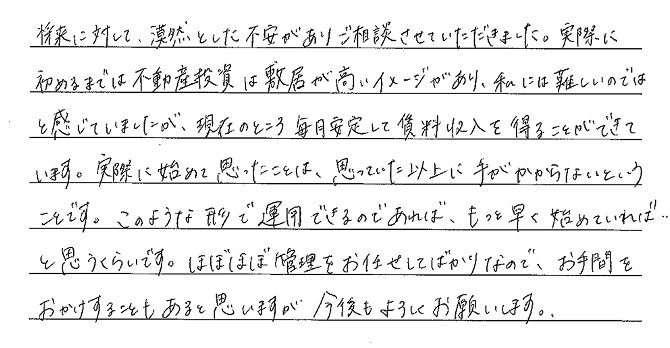 将来に対して、漠然とした不安がありご相談させていただきました。実際に
初めるまでは不動産投資は敷居が高いイメージがあり、私には難しいのでは
と感じていましたが、現在のところ毎月安定して賃料収入を得ることができて
います。実際に始めて思ったことは、思っていた以上に手がかからないという
ことです。このような形で運用できるのであれば、もっと早く始めていれば…
と思うくらいです。ほぼほぼ管理をお任せしてばかりなので、お手間を
おかけすることもあると思いますが今後もよろしくお願いします。